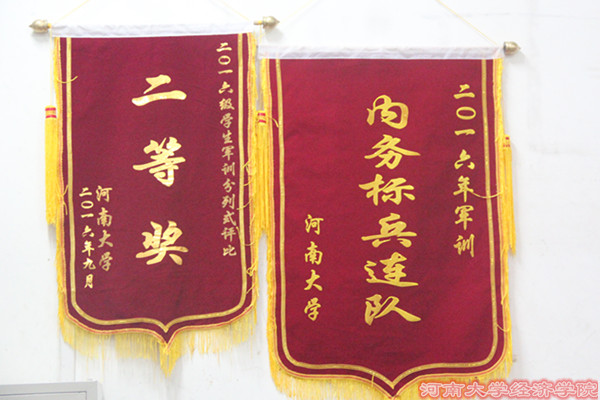 二〇一六级学生军训分列式评比
二等奖
河南大学
二〇一六年九月
二〇一六年军训
内务标兵连队
河南大学
河南大学经济学院